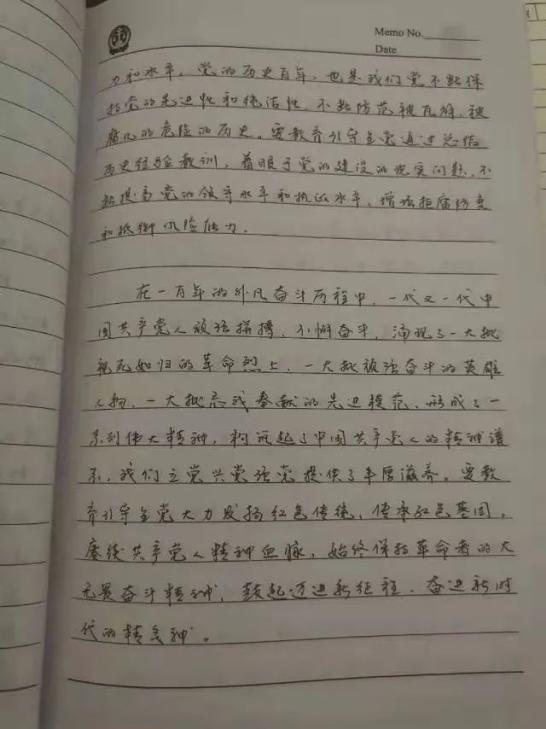 Memo No.
Date
力和水平。党的历史百年,也是我们党不断保
持党的先进性和纯洁性、不断防范被瓦解、被
腐化的危险的历史。要教育引导全党通过总结
历史经验教训,着眼于党的建设的现实问题,不
断提高党的领导水平和执政水平,增强拒腐防变
和抵御风险能力。
在一百年的非凡奋斗历程中,一代又一代中
国共产党人顽强拼搏、不懈奋斗,涌现了一大批
视死如归的革命烈士、一大批顽强奋斗的英雄
人物、一大批忘我奉献的先进模范,形成了一
系列伟大精神,构筑起了中国共产党人的精神谱
系,我们立党兴党强党提供了丰厚滋养。要教
育引导全党大力发扬红色传统、传承红色基因,
赓续共产党人精神血脉,始终保持革命者的大
无畏奋斗精神,鼓起迈进新征程、奋进新时
代的精气神。